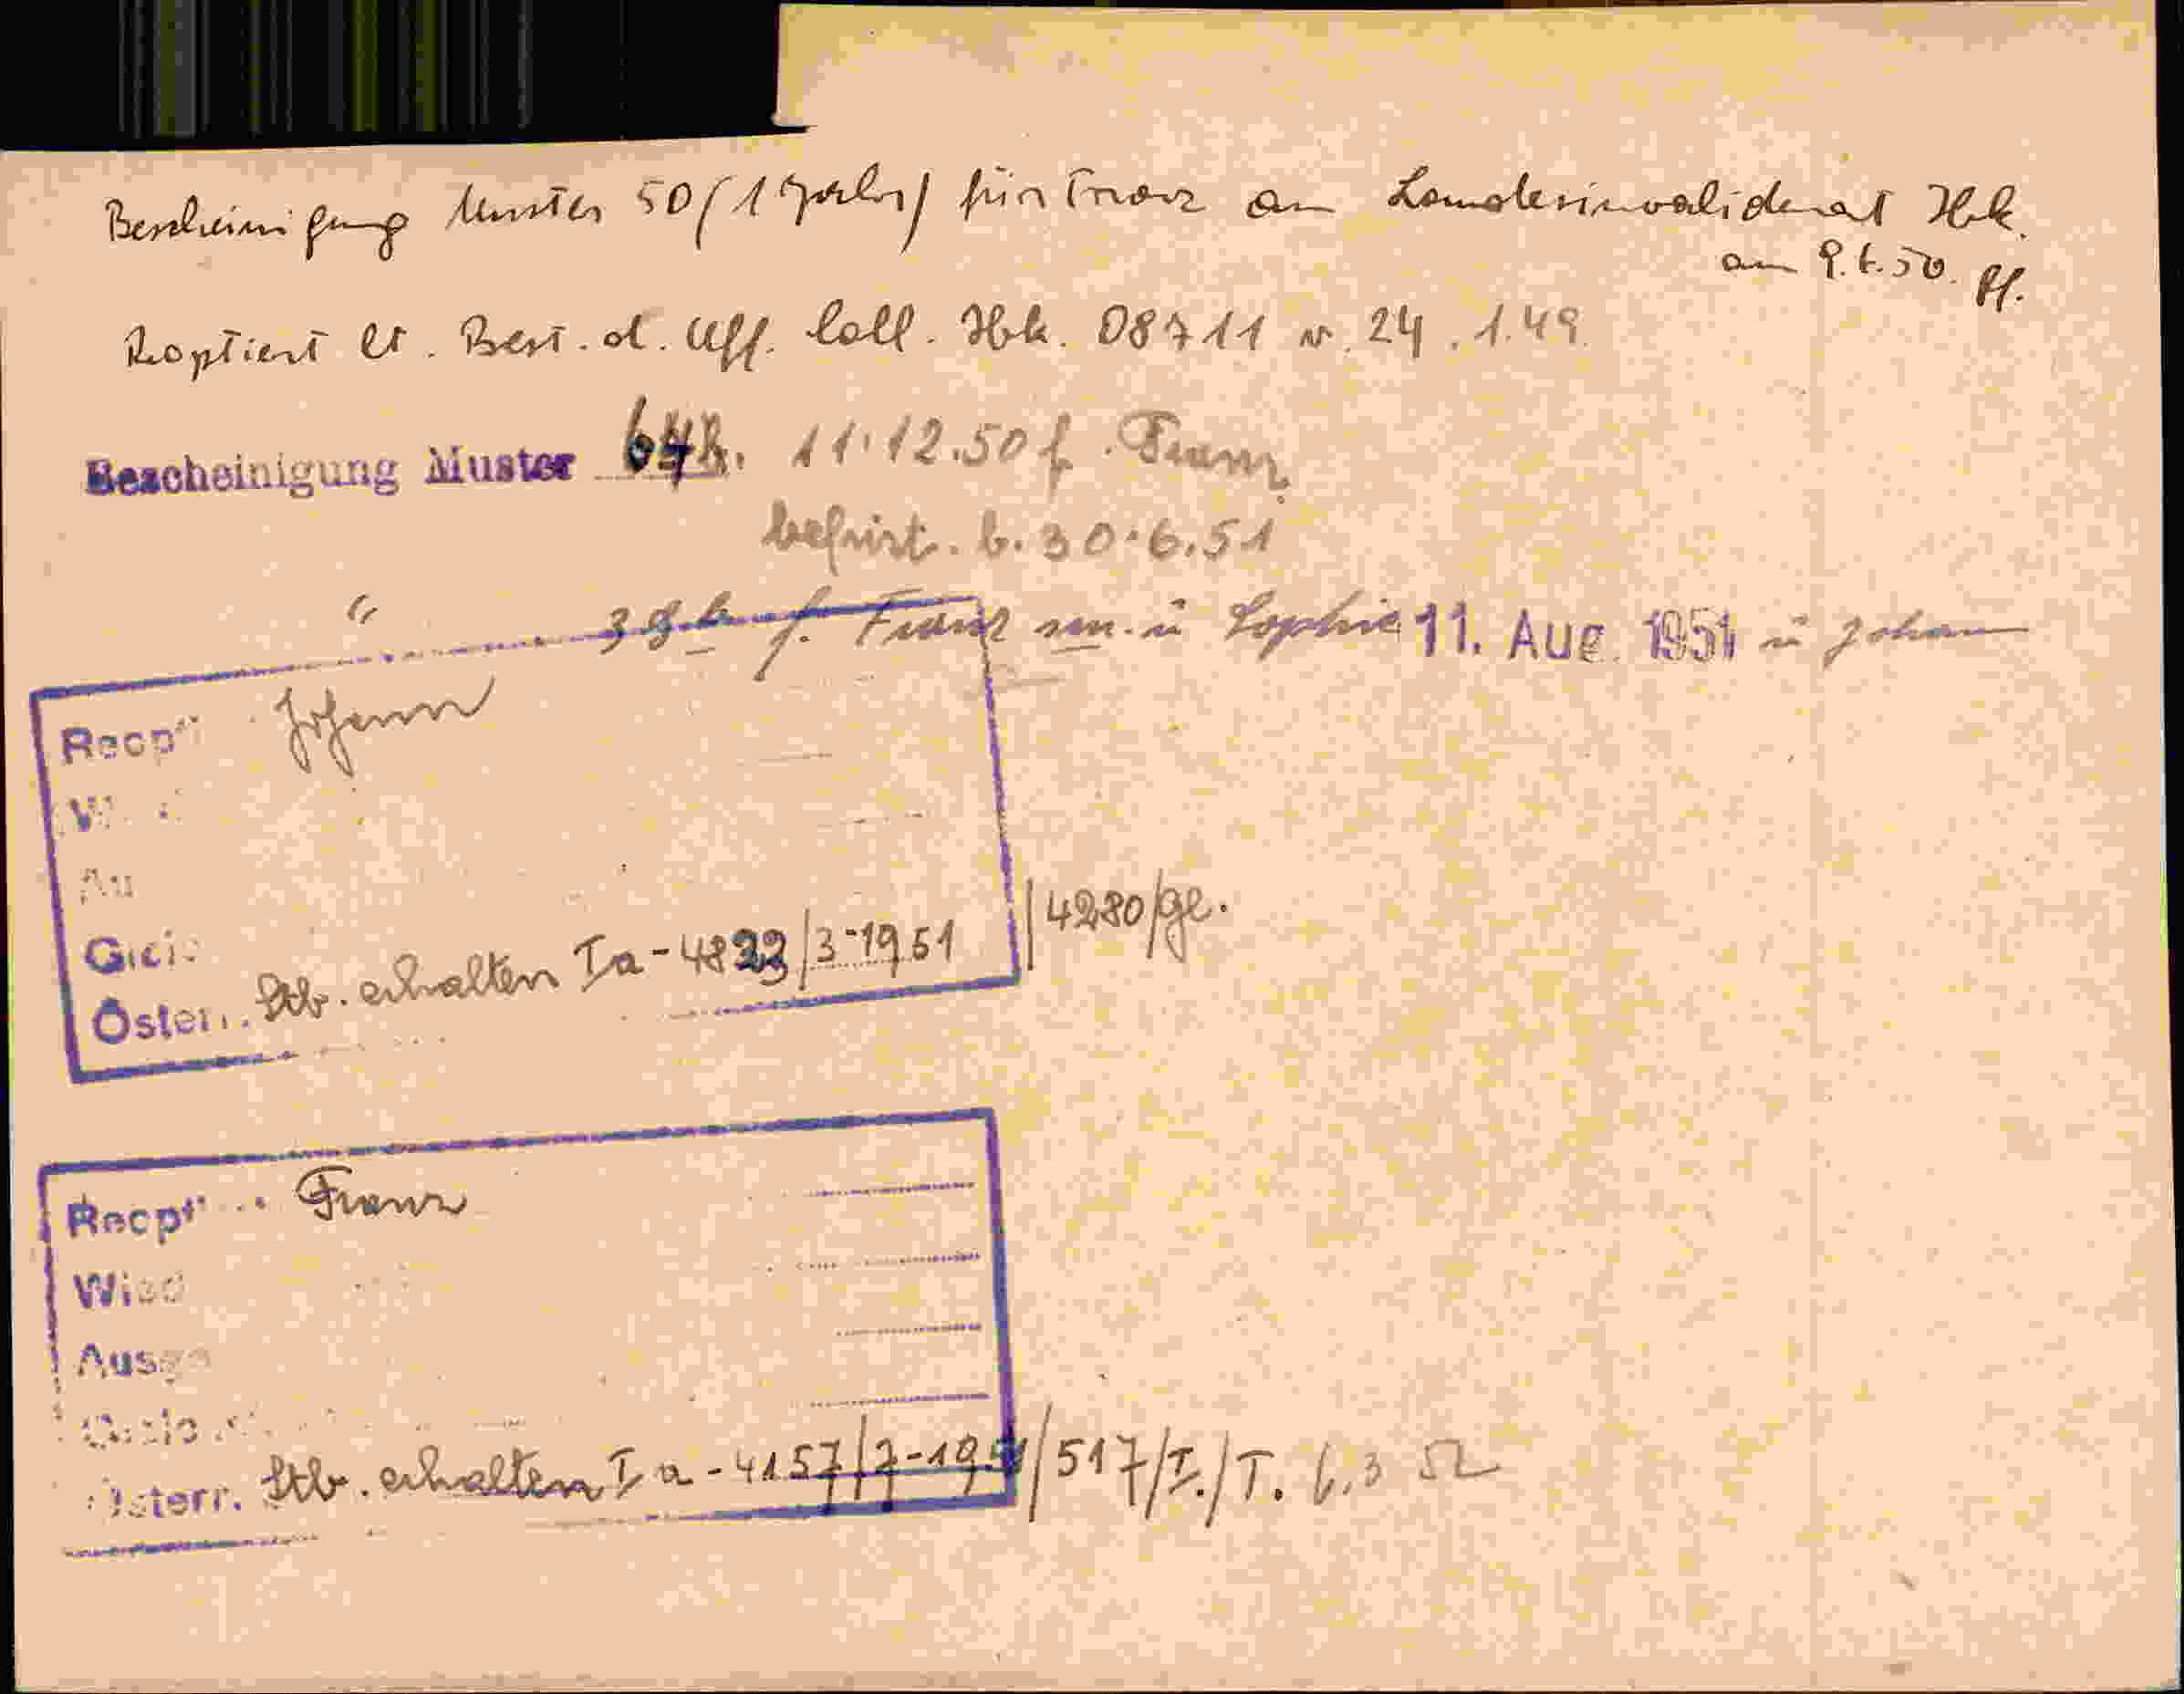 Bescheinigung Muster 50 (1 Jahr) für Franz an Landesinvalidenamt Ibk.
am 9.6.50. Pf.
Roptiert lt. Best. d. Uff. Coll. Ibk. 08711 v. 24.1.49.
Bescheinigung Muster 11.12.50 f. Franz
befrist. b. 30.6.51
" f. Franz sen. u Sophie 11. Aug. 1951 u Johann
Reopti Johann
Au
/4280/ge.
Österr. Stb. erhalten Ia-4823/3-1951
Reopt Franz
Wied
Ausge
Österr. Stb. erhalten Ia-4157/7-1951/517/I./T. 6.3